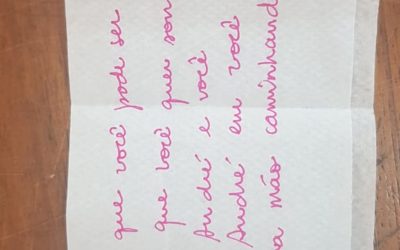 que você pode ser
que você quer son
André e você
André em você
a mão caminhand